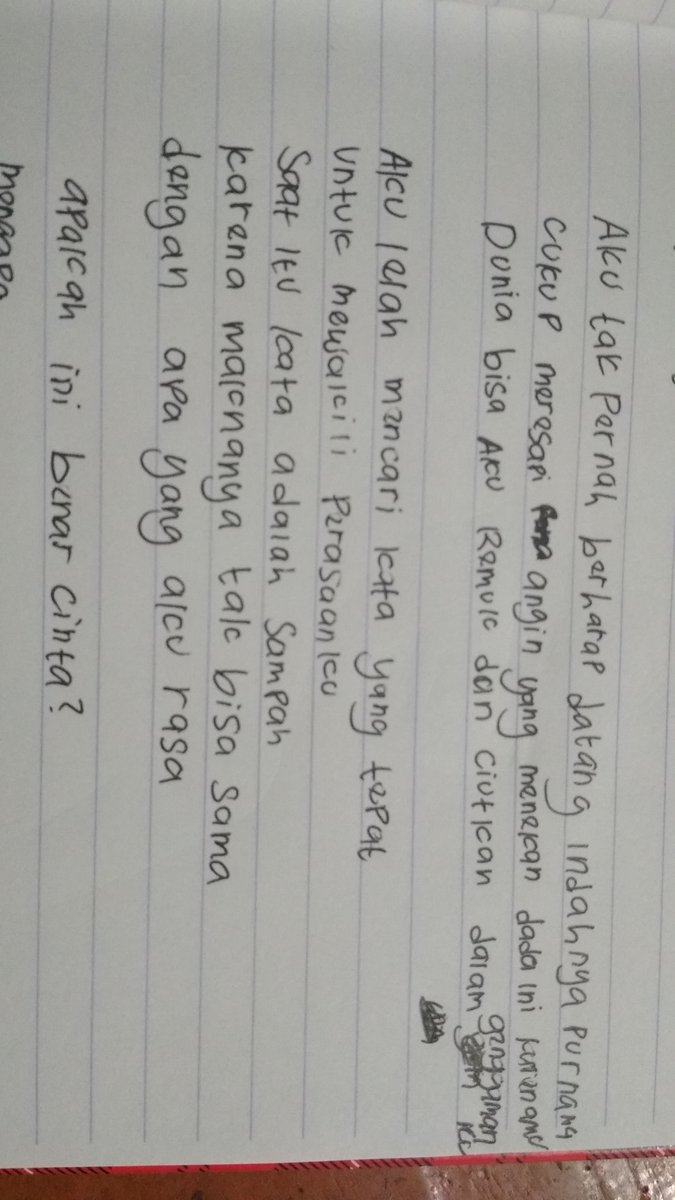 Aku tak pernah berharap datang indahnya purnama
cukup meresapi angin yang menekan dada ini karenamu
Dunia bisa Aku Remuk dan ciutkan dalam genggaman
Aku lelah mencari kata yang tepat
untuk mewakili perasaanku
Saat itu kata adalah sampah
karena maknanya tak bisa sama
dengan apa yang aku rasa
apakah ini benar cinta?
mengapa